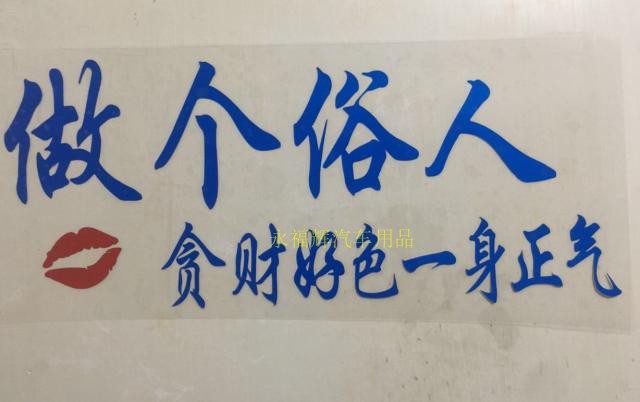 做个俗人
永福辉汽车用品
贪财好色一身正气